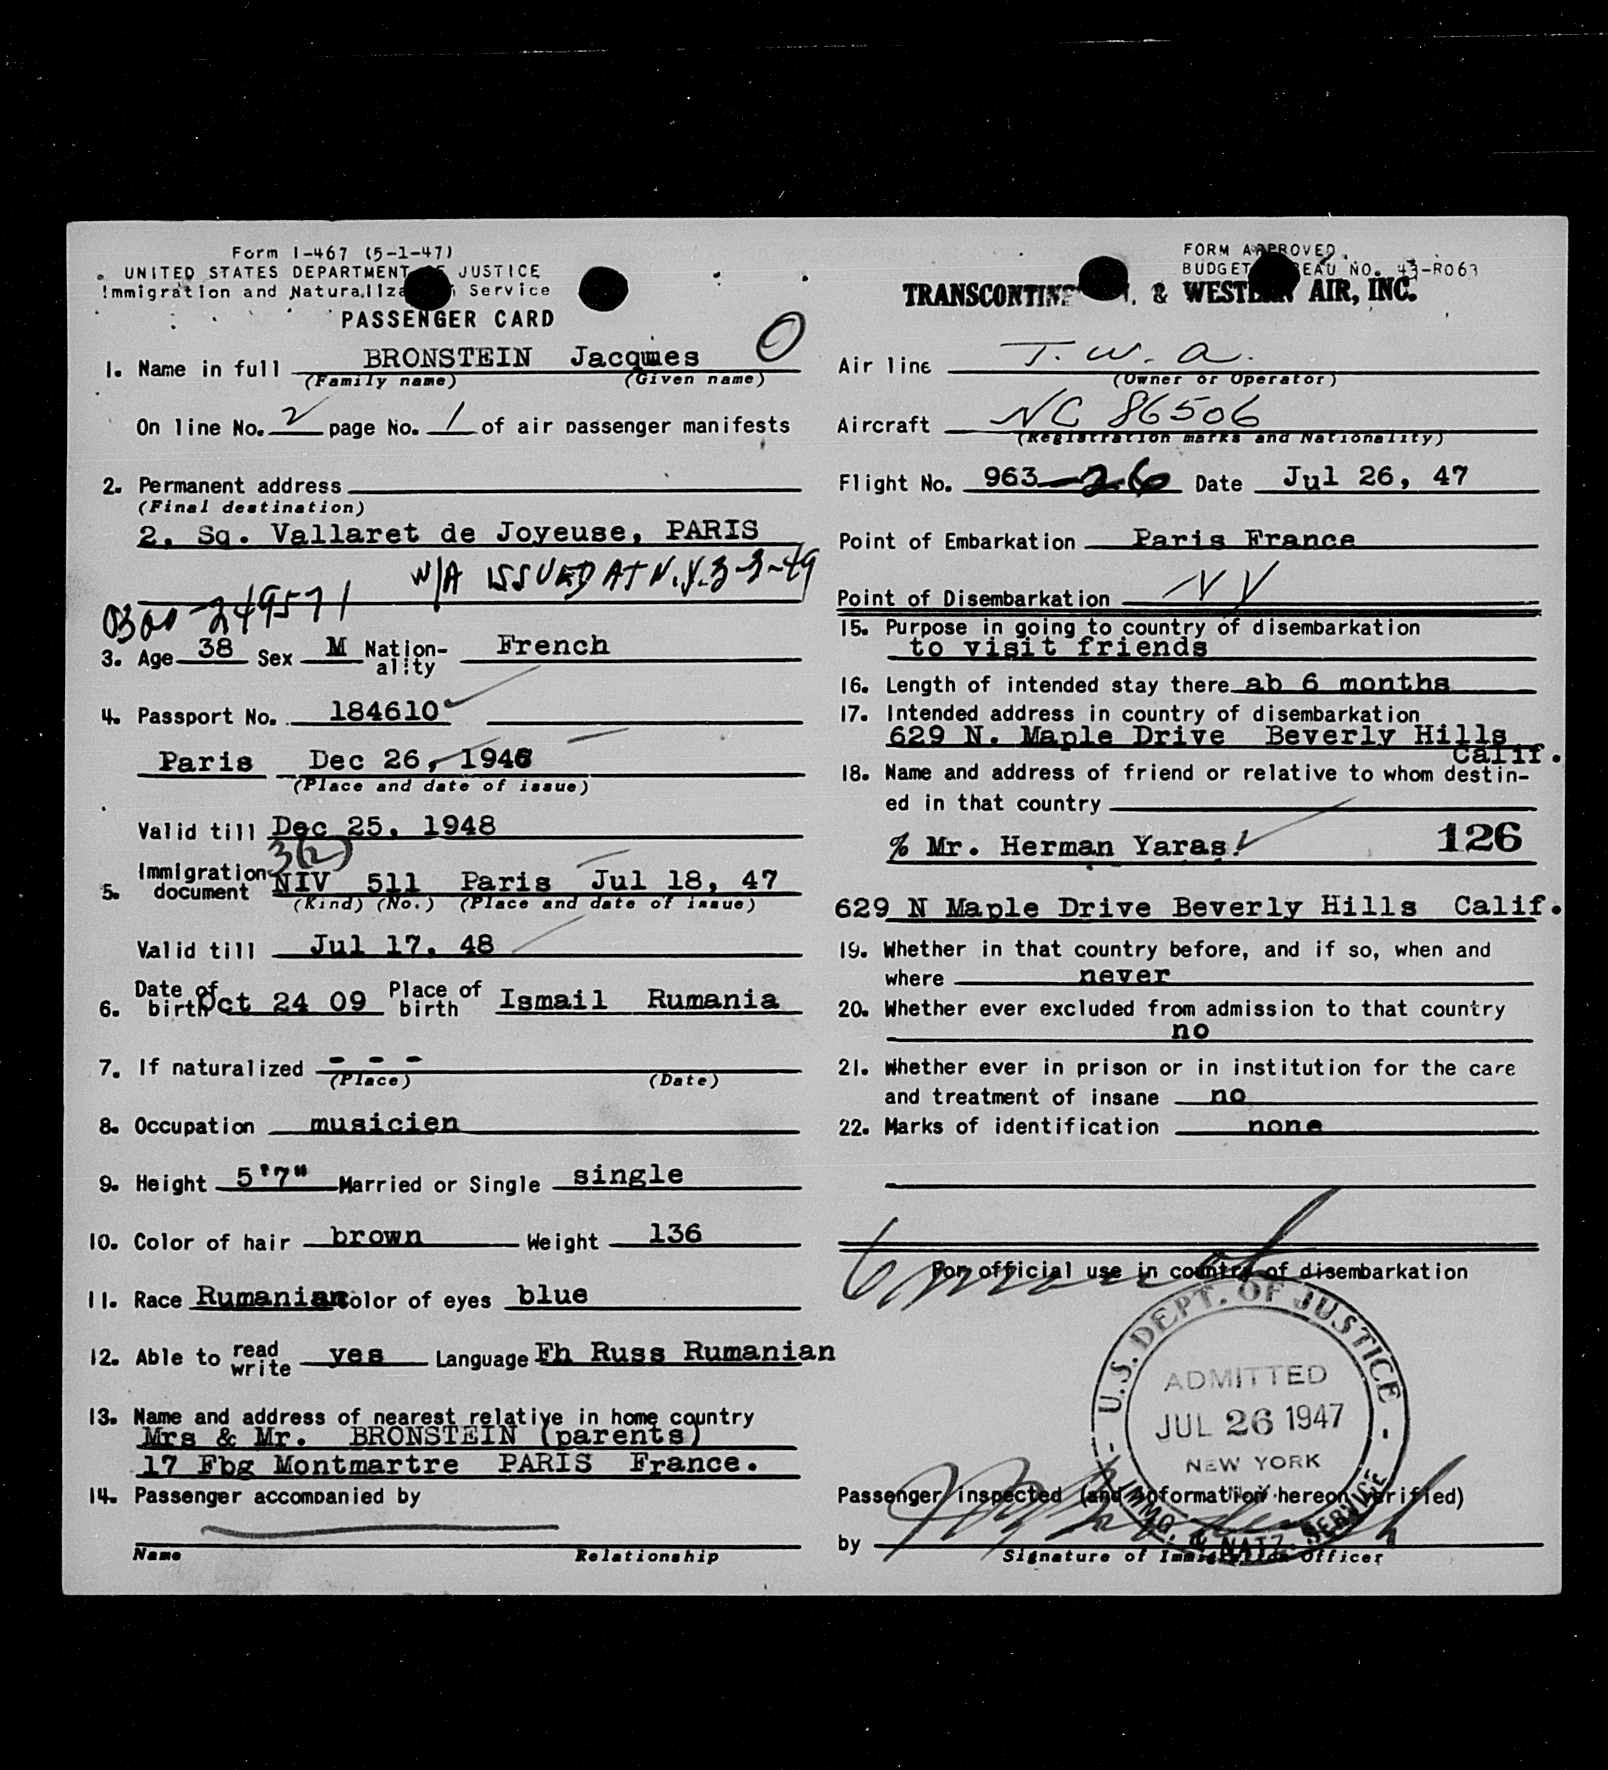 Form I-467 (5-1-47)
UNITED STATES DEPARTMENT OF JUSTICE
Immigration and Naturalization Service
PASSENGER CARD
1. Name in full BRONSTEIN Jacques O
(Family name) (Given name)
On line No. 2 page No. 1 of air passenger manifests
2. Permanent address
(Final destination)
2, Sq. Vallaret de Joyeuse, PARIS
W/A ISSUED AT N.Y. 3-3-49
0300-249571
3. Age 38 Sex M Nation-ality French
4. Passport No. 184610
Paris Dec 26, 1946
(Place and date of issue)
Valid till Dec 25, 1948
3(2)
5. Immigration document NIV 511 Paris Jul 18, 47
(Kind) (No.) (Place and date of issue)
Valid till Jul 17, 48
6. Date of birth Oct 24 09 Place of birth Ismail Rumania
7. If naturalized - - -
(Place) (Date)
8. Occupation musicien
9. Height 5'7" Married or Single single
10. Color of hair brown Weight 136
11. Race Rumanian Color of eyes blue
12. Able to read write yes Language Fh Russ Rumanian
13. Name and address of nearest relative in home country
Mrs & Mr. BRONSTEIN (parents)
17 Fbg Montmartre PARIS France.
14. Passenger accompanied by
Name Relationship
FORM APPROVED
BUDGET BUREAU NO. 43-R063
TRANSCONTINENTAL & WESTERN AIR, INC.
Air line T. W. A.
(Owner or Operator)
Aircraft NC 86506
(Registration marks and Nationality)
Flight No. 963-26 Date Jul 26, 47
Point of Embarkation Paris France
Point of Disembarkation NY
15. Purpose in going to country of disembarkation
to visit friends
16. Length of intended stay there ab 6 months
17. Intended address in country of disembarkation
629 N. Maple Drive Beverly Hills
Calif.
18. Name and address of friend or relative to whom destin-
ed in that country
% Mr. Herman Yaras. 126
629 N Maple Drive Beverly Hills Calif.
19. Whether in that country before, and if so, when and
where never
20. Whether ever excluded from admission to that country
no
21. Whether ever in prison or in institution for the care
and treatment of insane no
22. Marks of identification none
For official use in country of disembarkation
U.S. DEPT. OF JUSTICE
ADMITTED
JUL 26 1947
NEW YORK
IMMG. & NATZ. SERVICE
Passenger inspected (and information hereon verified)
by
Signature of Immigration Officer